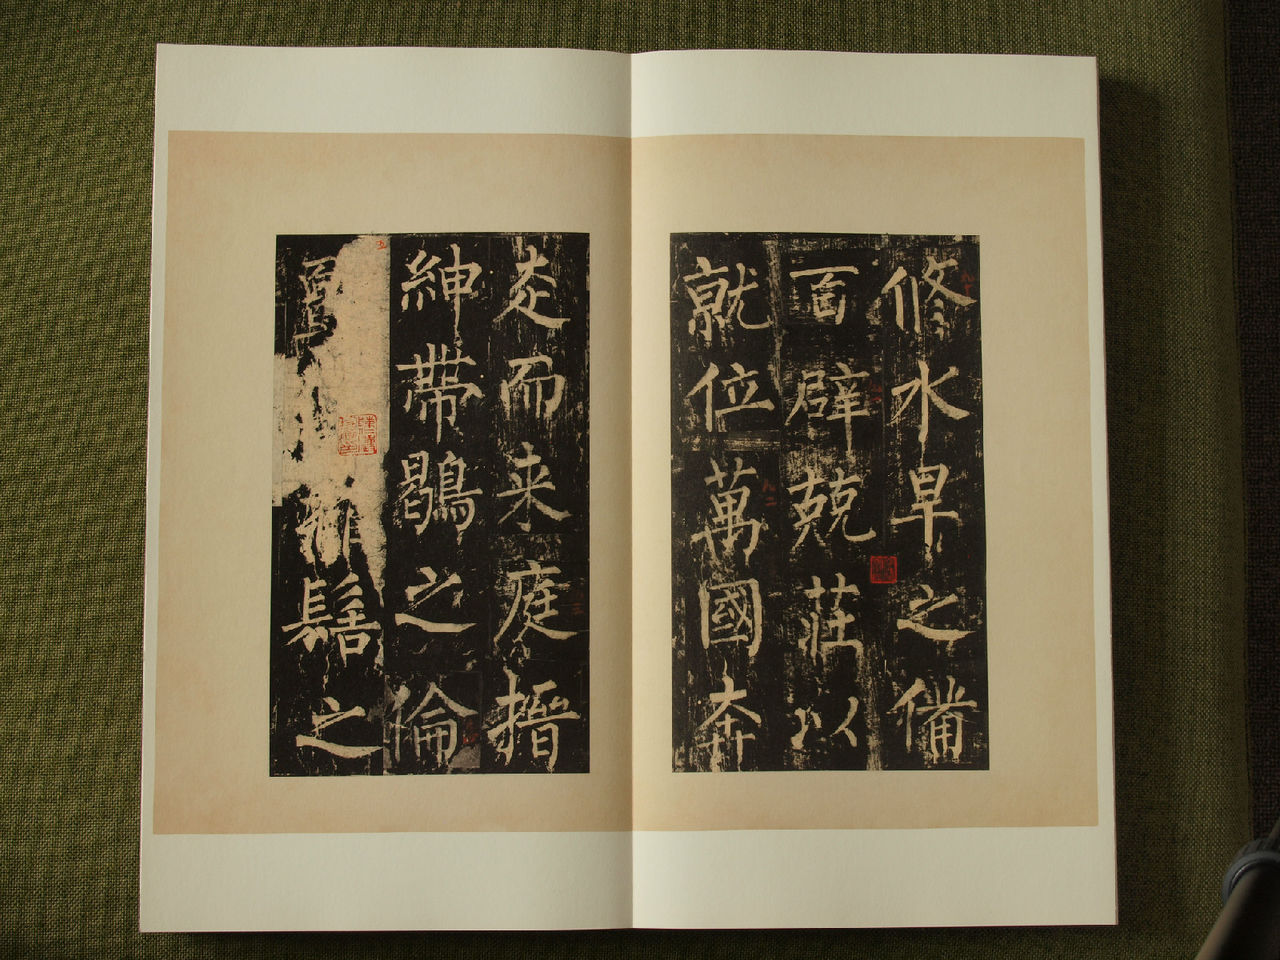 修水旱之備
百辟兢莊以
就位萬國奔
走而来庭搢
紳帶鶡之倫
髾之